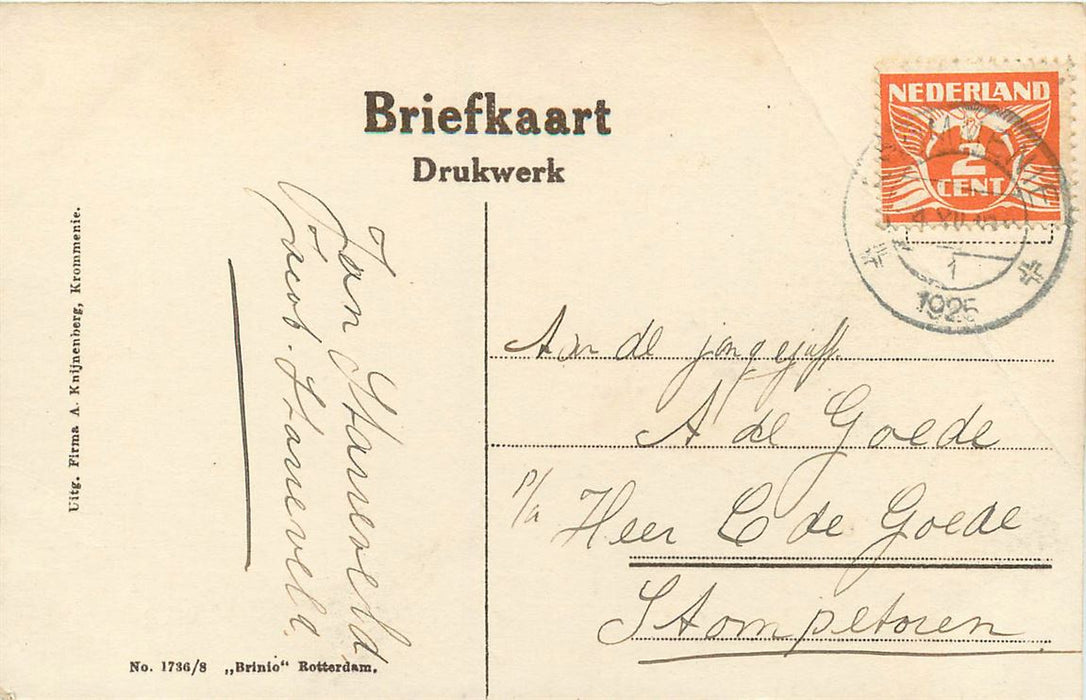 Briefkaart
Drukwerk
NEDERLAND
2
CENT
1
1925
Jan Stareveld
Jacob Stareveld.
Aan de jongejuff.
A de Goede
p/a Heer C de Goede
Stompetoren
Uitg. Firma A. Knijnenberg, Krommenie.
No. 1736/8 „Brinio“ Rotterdam.